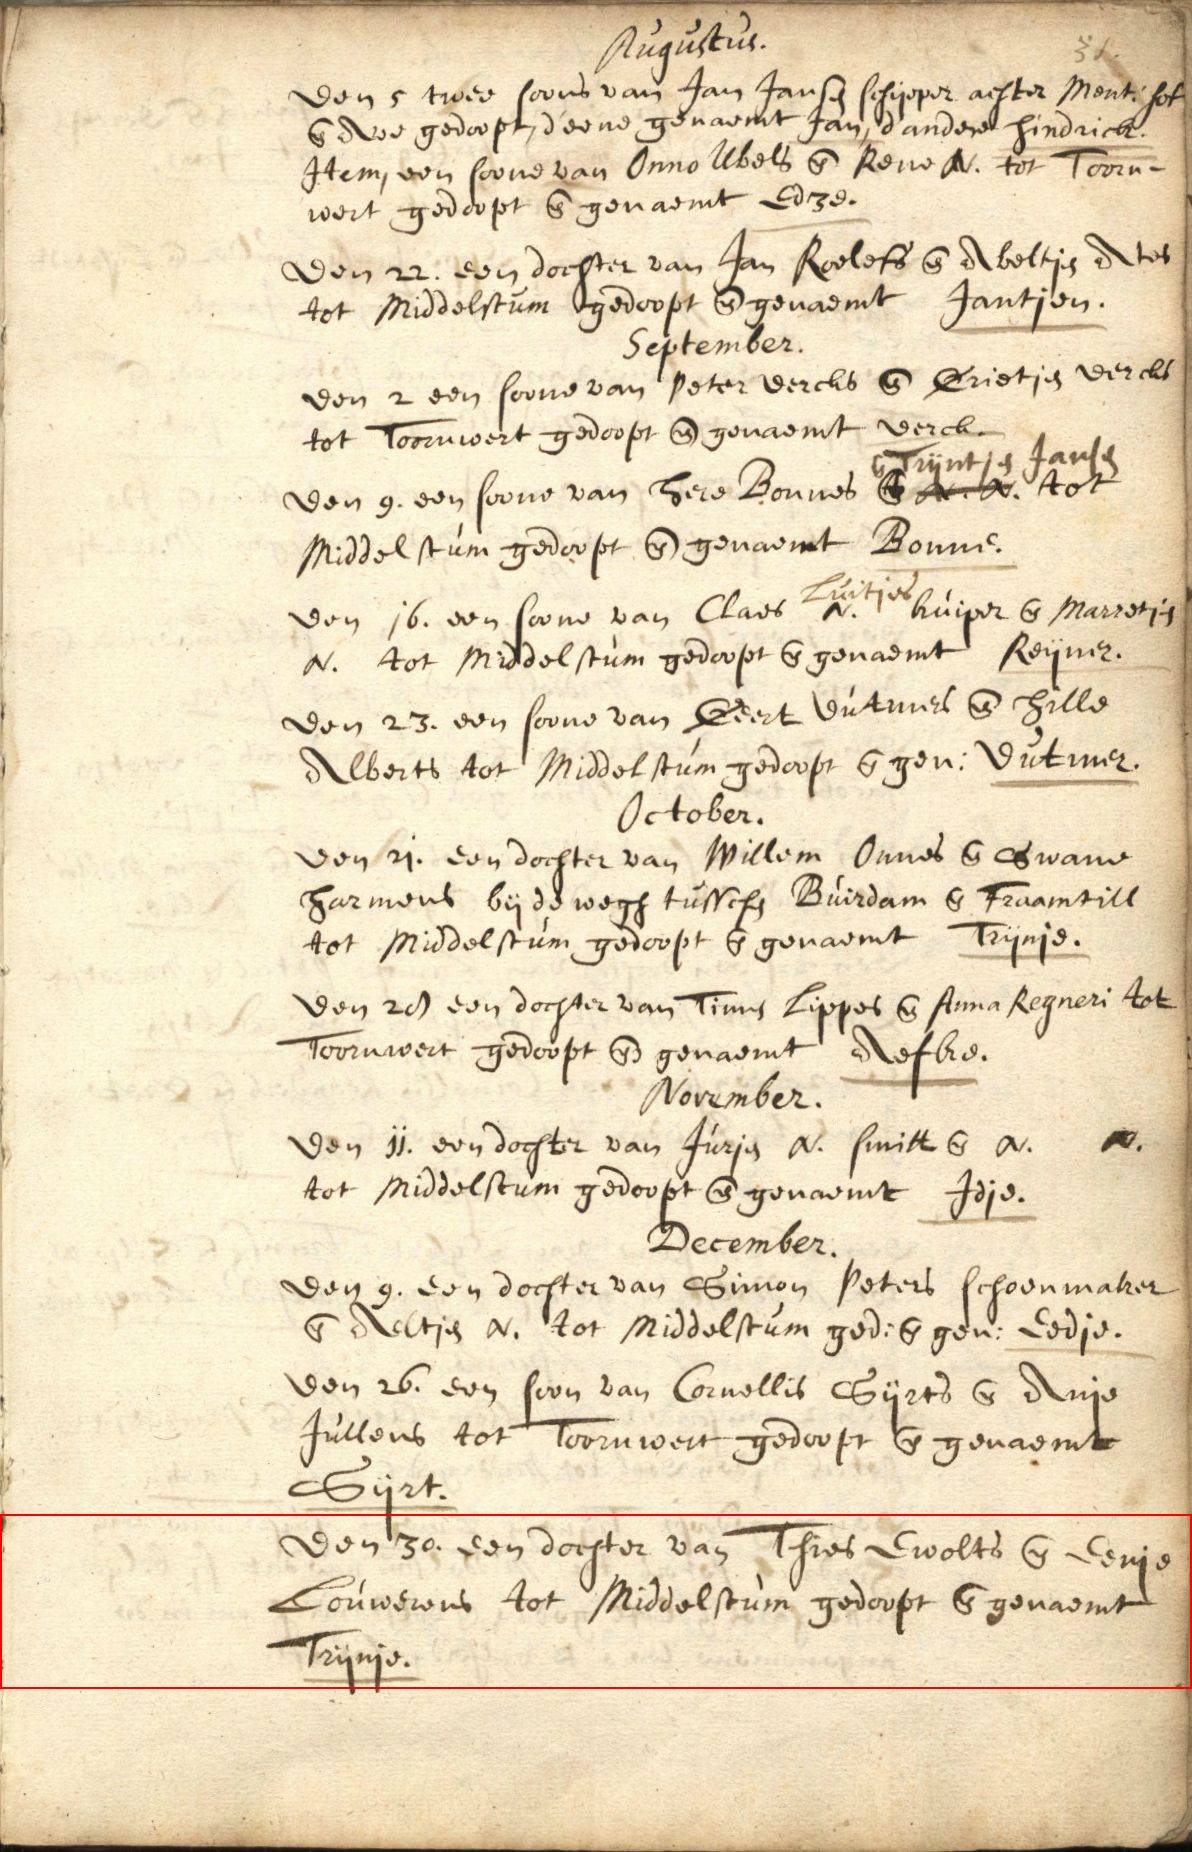 Augustus.
31.
Den 5 twee soons van Jan Jansen schipper achter Ment: hof
& Ave gedoopt, d'eene genaemt Jan, d'andere Hindrick.
Item, een soone van Onno Ubels & Rene N. tot Toorn-
wert gedoopt & genaemt Edze.
Den 22. een dochter van Jan Roelefs & Abeltje Ates
tot Middelstum gedoopt & genaemt Jantjen.
September.
Den 2 een soone van Peter Dercks & Grietje Dercks
tot Toornwert gedoopt & genaemt Derck.
& Trijntje Jansen
Den 9. een soone van Here Bonnes & N. N. tot
Middelstum gedoopt & genaemt Bonne.
Luitjes
Den 16. een soone van Claes N. kuiper & Marretje
N. tot Middelstum gedoopt & genaemt Reijner.
Den 23. een soone van Geert Dutmers & Hille
Alberts tot Middelstum gedoopt & gen: Dutmer.
October.
Den 21. een dochter van Willem Onnes & Swane
Harmens bij de wegh tusschen Buirdam & Fraamtill
tot Middelstum gedoopt & genaemt Trijnje.
Den 28 een dochter van Timen Lippes & Anna Regneri tot
Toornwert gedoopt & genaemt Aefke.
November.
Den 11. een dochter van Jurjen N. smitt & N. N.
tot Middelstum gedoopt & genaemt Idje.
December.
Den 9. een dochter van Simon Peters schoenmaker
& Aeltje N. tot Middelstum ged: & gen: Eedje.
Den 26. een soon van Cornellis Sijrts & Anje
Jullens tot Toornwert gedoopt & genaemt
Sijrt.
Den 30. een dochter van Thies Ewolts & Eenje
Louwerens tot Middelstum gedoopt & genaemt
Trijnje.